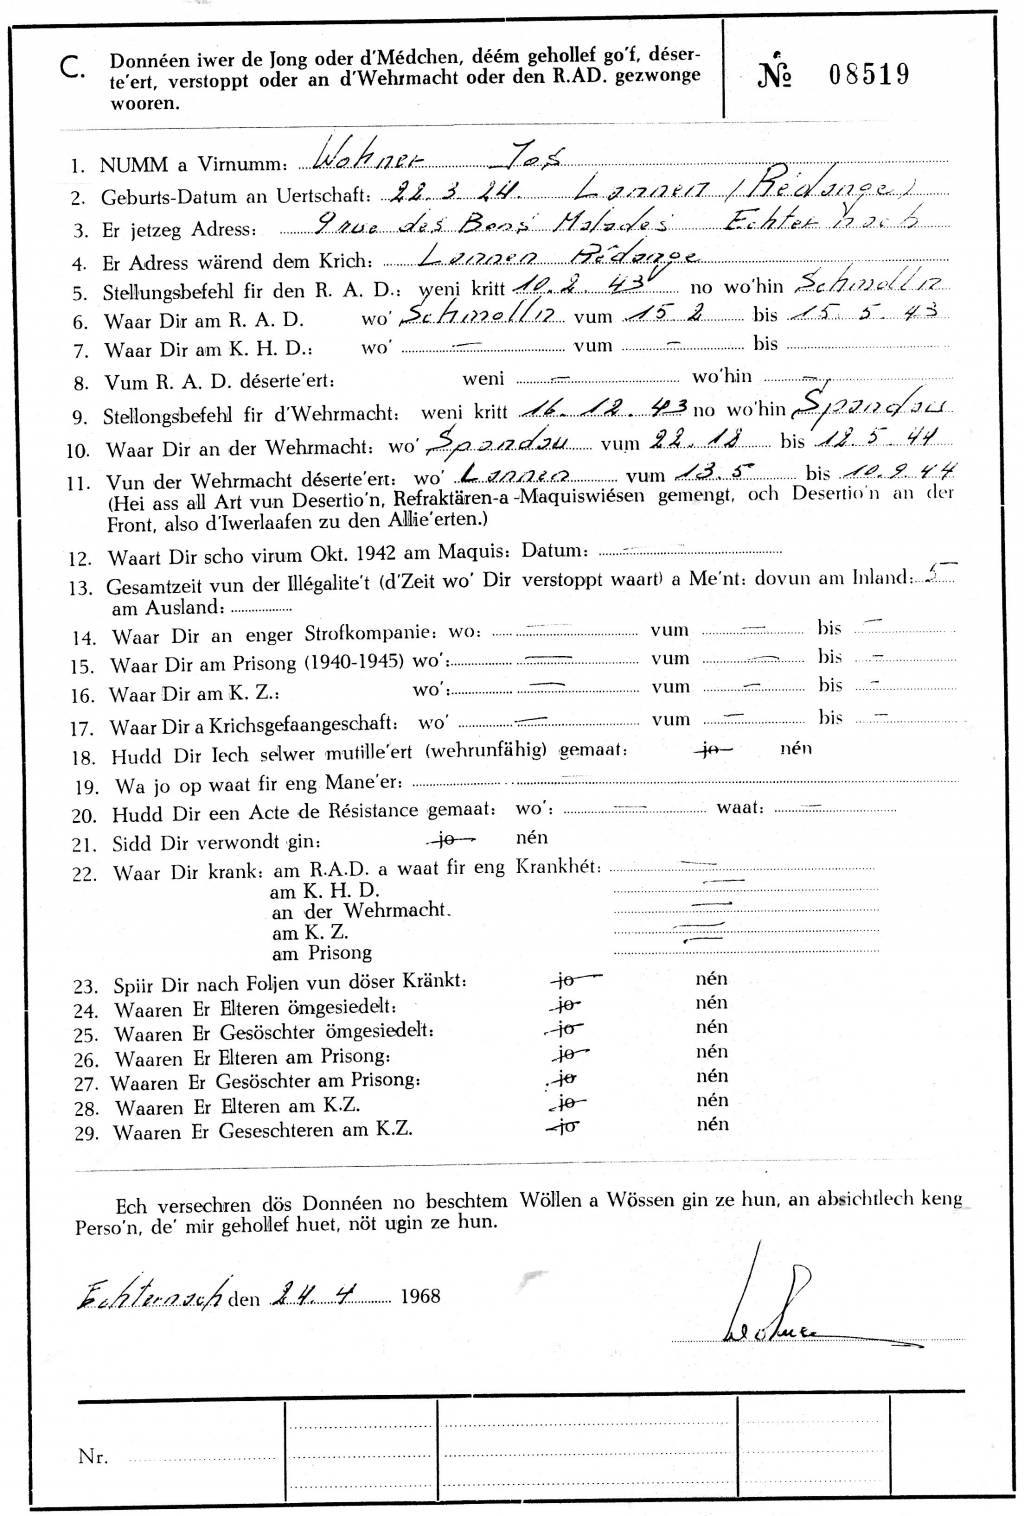 C. Donnéen iwer de Jong oder d'Médchen, déém gehollef go'f, déser-
te'ert, verstoppt oder an d'Wehrmacht oder den R.AD. gezwonge
wooren.
№ 08519
1. NUMM a Virnumm: Wohner Jos
2. Geburts-Datum an Uertschaft: 22. 3. 24. Lannen (Rédange)
3. Er jetzeg Adress: 9 rue des Bons Malades Echternach
4. Er Adress wärend dem Krich: Lannen Rédange
5. Stellungsbefehl fir den R. A. D.: weni kritt 10. 2. 43 no wo'hin Schmölln
6. Waar Dir am R. A. D. wo' Schmölln vum 15. 2 bis 15. 5. 43
7. Waar Dir am K. H. D.: wo' — vum — bis
8. Vum R. A. D. déserte'ert: weni — wo'hin —
9. Stellongsbefehl fir d'Wehrmacht: weni kritt 16. 12. 43 no wo'hin Spandau
10. Waar Dir an der Wehrmacht: wo' Spandau vum 22. 12 bis 12. 5. 44
11. Vun der Wehrmacht déserte'ert: wo' Lannen vum 13. 5 bis 10. 9. 44
(Hei ass all Art vun Desertio'n, Refraktären-a-Maquiswiésen gemengt, och Desertio'n an der
Front, also d'Iwerlaafen zu den Allie'erten.)
12. Waart Dir scho virum Okt. 1942 am Maquis: Datum: —
13. Gesamtzeit vun der Illégalite't (d'Zeit wo' Dir verstoppt waart) a Me'nt: dovun am Inland: 5
am Ausland:
14. Waar Dir an enger Strofkompanie: wo: — vum — bis —
15. Waar Dir am Prisong (1940-1945) wo': — vum — bis —
16. Waar Dir am K. Z.: wo': — vum — bis —
17. Waar Dir a Krichsgefaangeschaft: wo' — vum — bis —
18. Hudd Dir Iech selwer mutille'ert (wehrunfähig) gemaat: jo nén
19. Wa jo op waat fir eng Mane'er: —
20. Hudd Dir een Acte de Résistance gemaat: wo': — waat: —
21. Sidd Dir verwondt gin: jo nén
22. Waar Dir krank: am R.A.D. a waat fir eng Krankhét: —
am K. H. D. —
an der Wehrmacht. —
am K. Z. —
am Prisong —
23. Spiir Dir nach Foljen vun döser Kränkt: jo nén
24. Waaren Er Elteren ömgesiedelt: jo nén
25. Waaren Er Gesöschter ömgesiedelt: jo nén
26. Waaren Er Elteren am Prisong: jo nén
27. Waaren Er Gesöschter am Prisong: jo nén
28. Waaren Er Elteren am K.Z. jo nén
29. Waaren Er Geseschteren am K.Z. jo nén
Ech versechren dös Donnéen no beschtem Wöllen a Wössen gin ze hun, an absichtlech keng
Perso'n, de' mir gehollef huet, nöt ugin ze hun.
Echternach den 24. 4 1968
Nr.